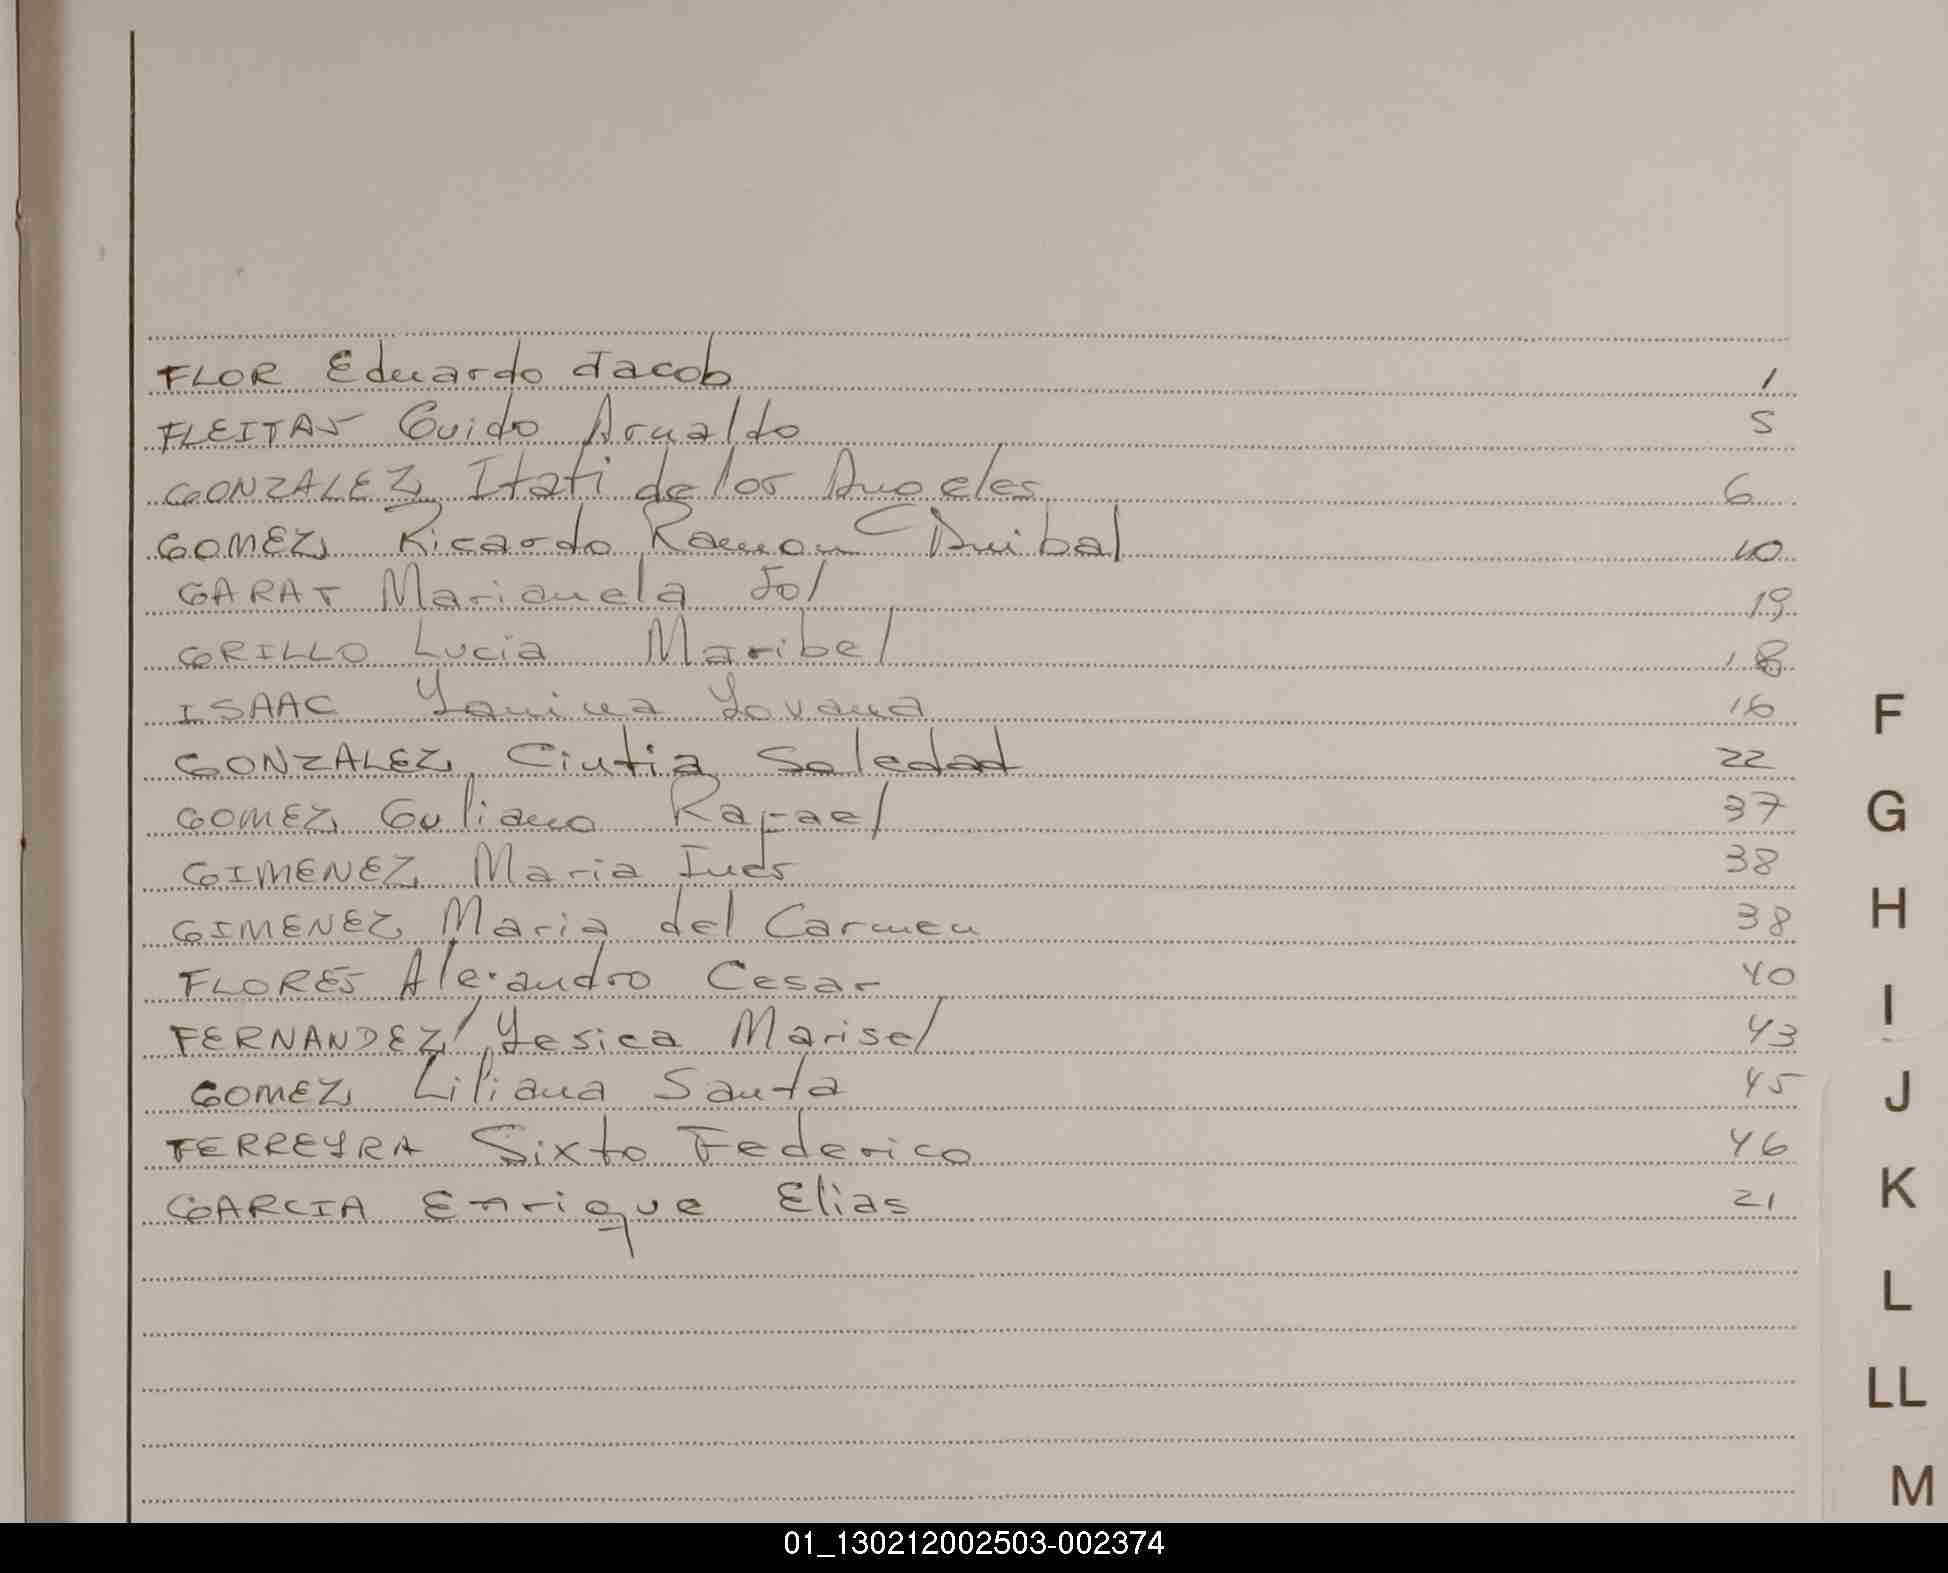 FLOR Eduardo Jacob 1
FLEITAS Guido Arnaldo 5
GONZALEZ Itati de los Angeles 6
GOMEZ Ricardo Ramon Anibal 10
GARAT Marianela Sol 19
GRILLO Lucia Maribel 18
ISAAC Yanina Yovana 16
GONZALEZ Cintia Soledad 22
GOMEZ Guliano Rafael 37
GIMENEZ Maria Ines 38
GIMENEZ Maria del Carmen 38
FLORES Alejandro Cesar 40
FERNANDEZ Yesica Marisel 43
GOMEZ Liliana Santa 45
FERREYRA Sixto Federico 46
GARCIA Enrique Elias 21
F
G
H
I
J
K
L
LL
M
01_130212002503-002374